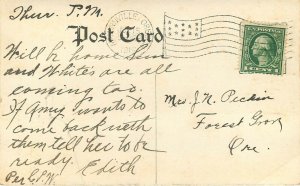 Thur. P.M.
Post Card
Will be home Sun
and Whites are all
coming too.
If Amy wants to
come back with
them tell her to be
ready.
Edith
Per E.P.W.
Mrs J. N. Peckin
Forest Grov
Ore.
1 CENT 1